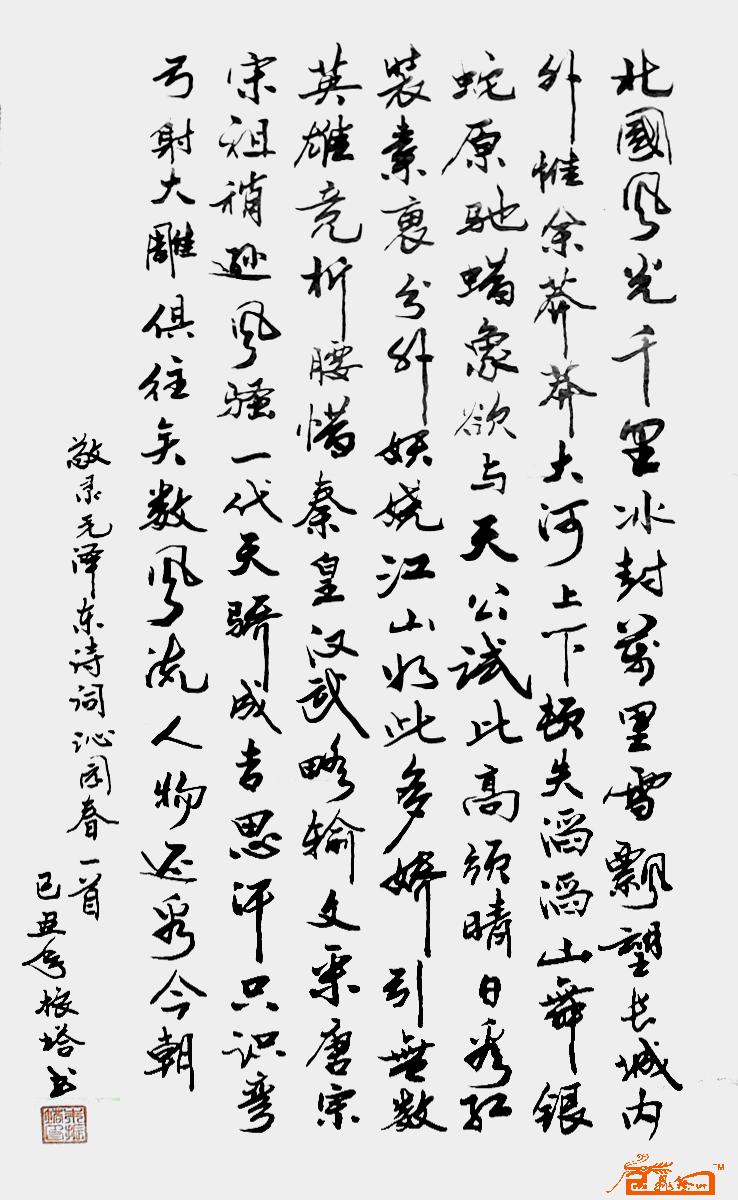 北國風光千里冰封萬里雪飘望长城内
外惟余莽莽大河上下顿失滔滔山舞银
蛇原驰蜡象欲与天公试比高须晴日看红
装素裹分外妖娆江山如此多娇引無数
英雄竞折腰惜秦皇汉武略输文采唐宗
宋祖稍逊風骚一代天骄成吉思汗只识弯
弓射大雕俱往矣数風流人物还看今朝
敬录毛泽东诗词沁园春一首
己丑年振塔书